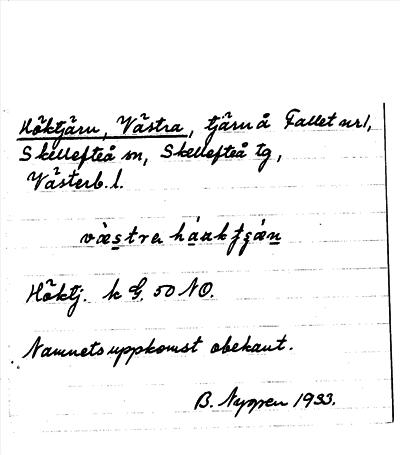 Höktjärn, Västra, tjärn å Fallet nr 1,
Skellefteå sn, Skellefteå tg,
Västerb. l.
Höktj. k G. 50 NO.
Namnets uppkomst obekant.
B. Nyppen 1933.